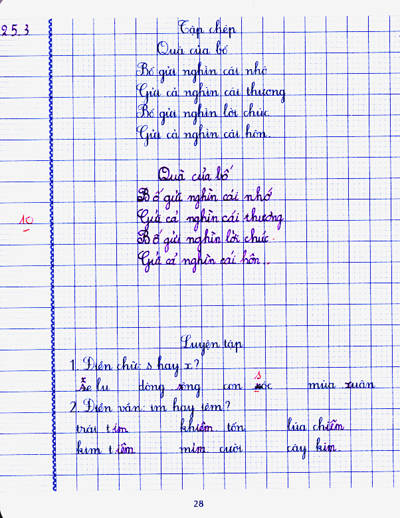 25.3 Tập chép
Quà của bố
Bố gửi nghìn cái nhớ
Gửi cả nghìn cái thương
Bố gửi nghìn lời chúc
Gửi cả nghìn cái hôn.
Quà của bố
Bố gửi nghìn cái nhớ
Gửi cả nghìn cái thương
10
Bố gửi nghìn lời chúc.
Gửi cả nghìn cái hôn..
Luyện tập
1. Điền chữ: s hay x?
s
xe lu dòng sông con sóc mùa xuân
2. Điền vần: im hay iêm?
trái tim khiêm tốn lúa chiêm
kim tiêm mỉm cười cây kim.
28